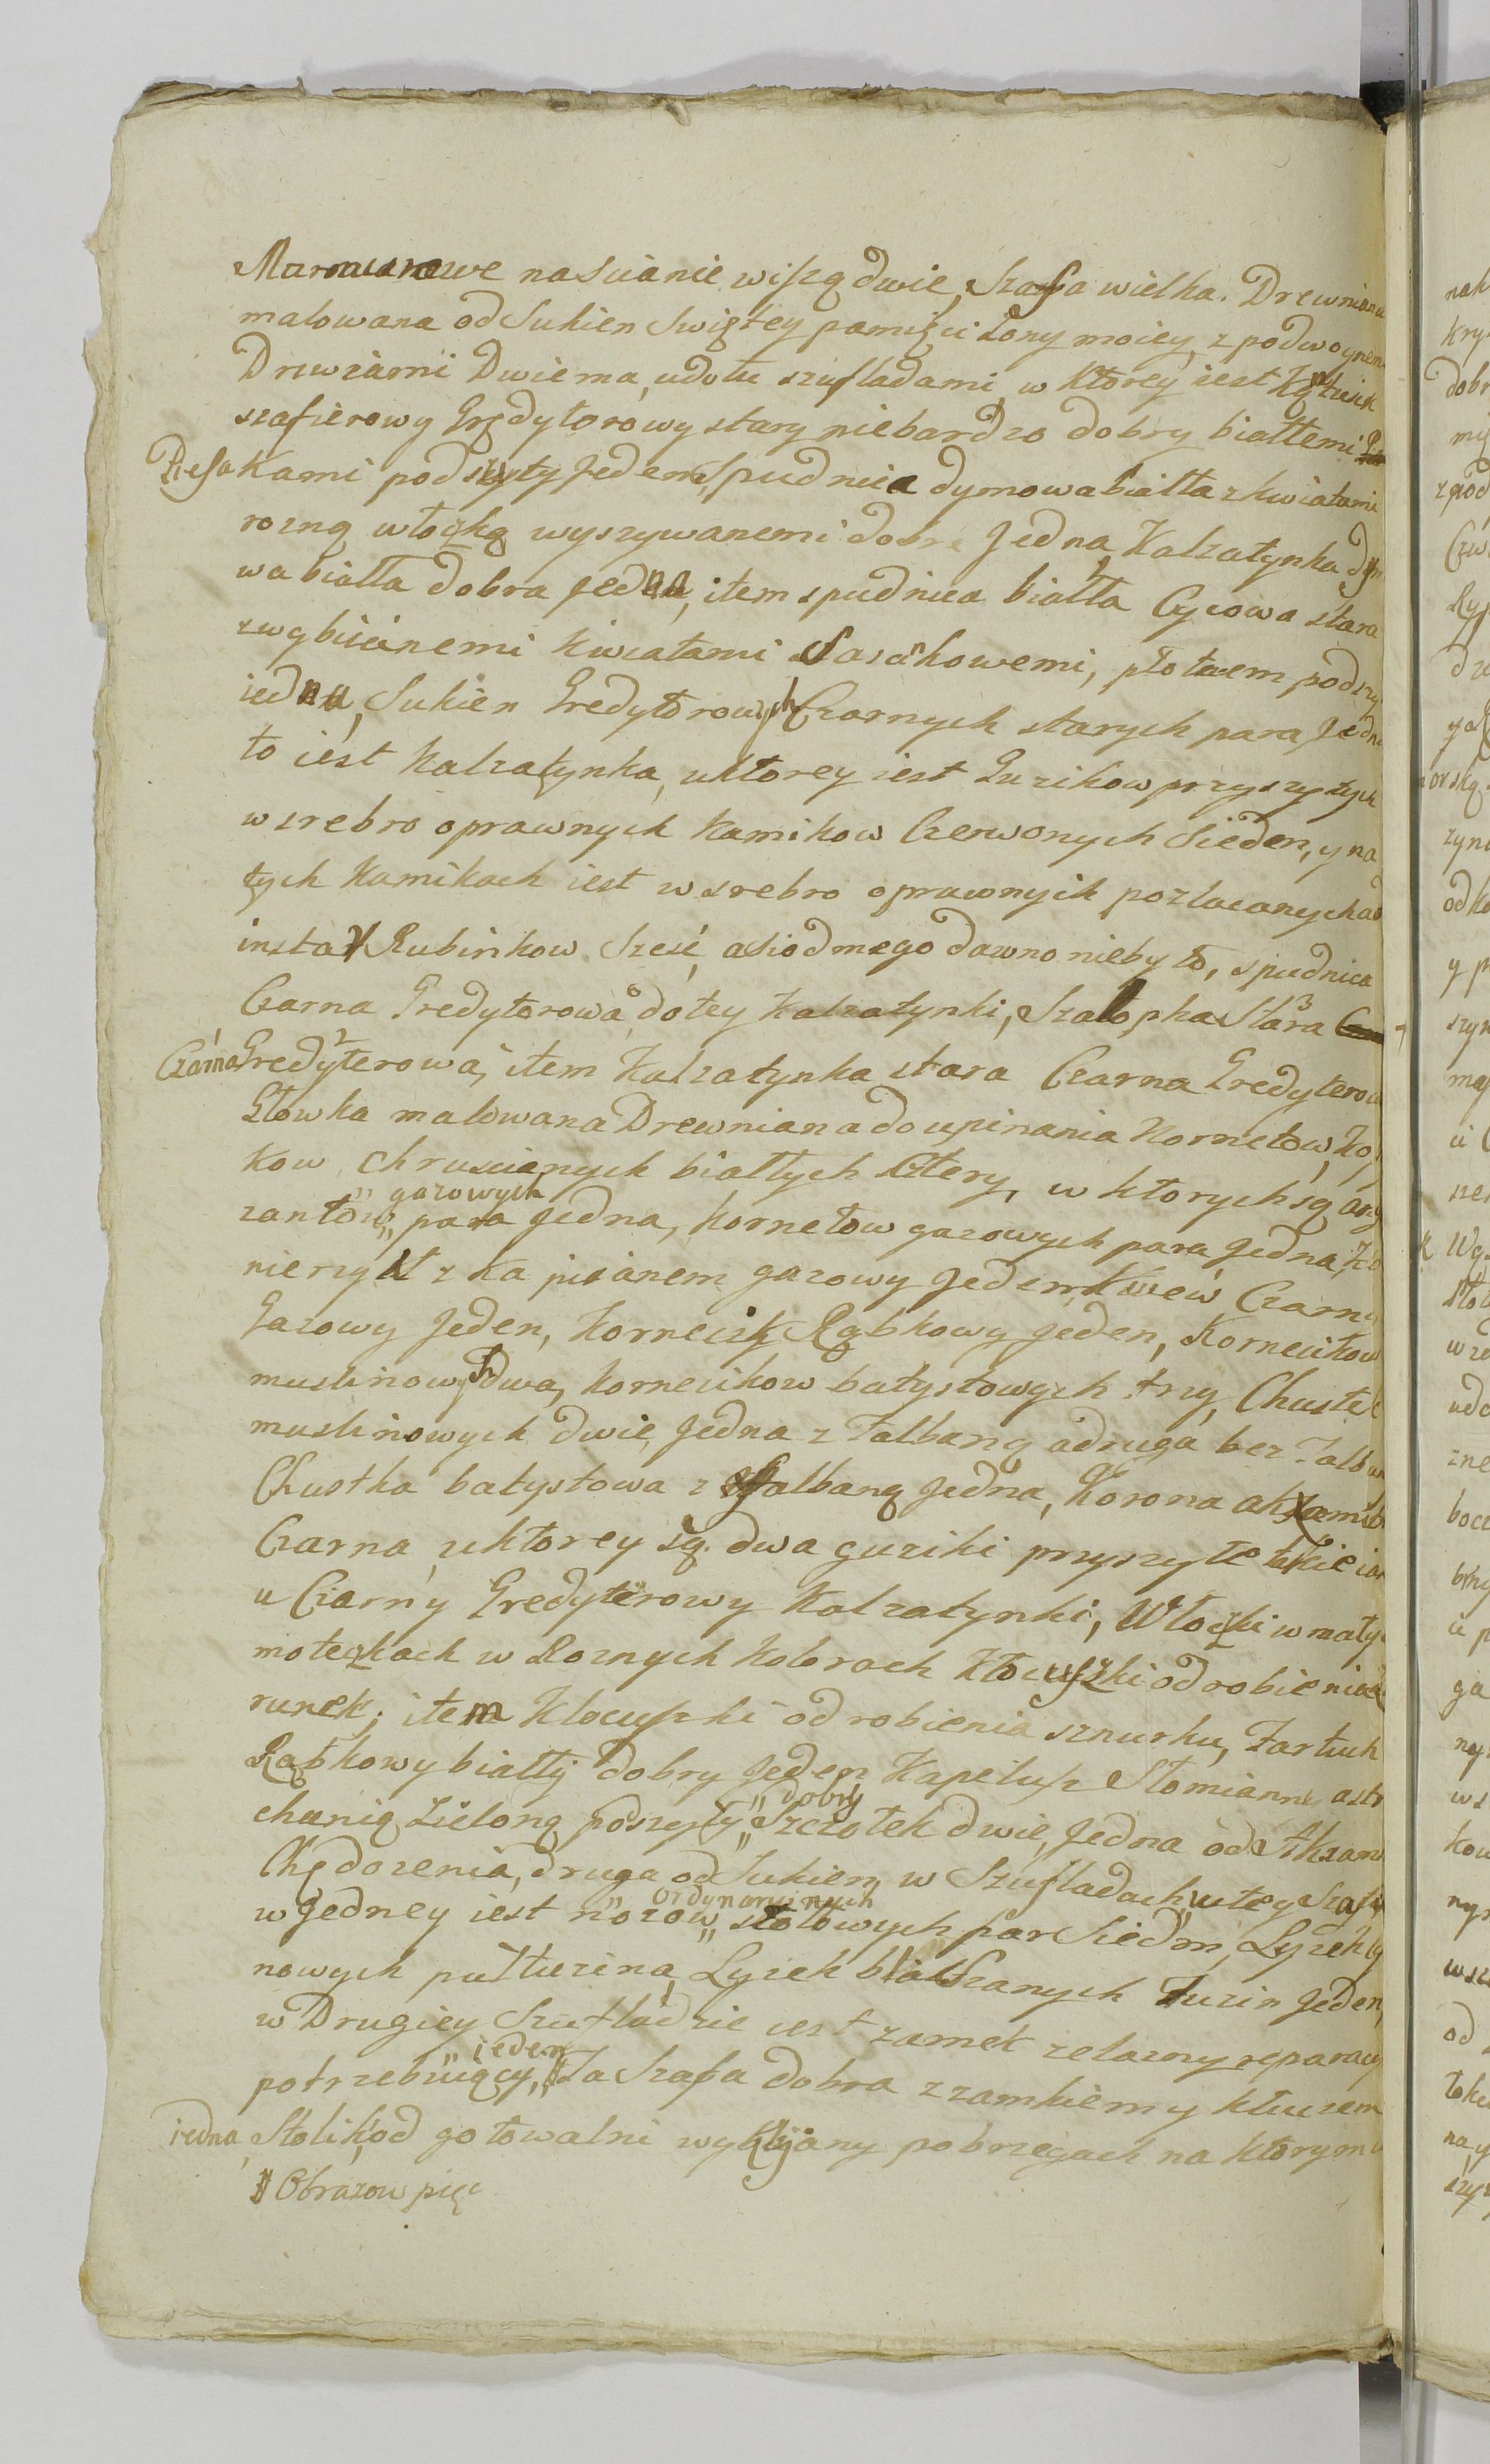 Marmurowe na Scianie wiszą dwie, Szafa wielka Drewniana
malowana od Sukien Swiętey pamięci Żony moiey, z podwoynemi
Drzwiami Dwiema, udołu szufladami, w Ktorey iest
szafierowy Gredytorowy stary niebardzo dobry białłemi
Piesakami podszyty Jeden, Spudnica dymowa białła z kwiatami
rozną włoczką wyszywanemi dobra Jedna, Kalzatynka dymo
wa białła dobra Jedna, item spudnica białła Cycowa stara
z wybiianemi kwiatami Fasackowemi, płotnem podszy
iedna, Sukien Gredytorowych Czarnych starych para Jedna
to iest Kalzatynka, u ktorey iest Guzikow przyszytych
w srebro oprawnych Kamikow Czerwonych Siedem, y na
tych Kamikach iest w srebro oprawnych pozłacanych ad
instar Rubinkow Sześć, a Siodmego dawno niebyło, spudnica
Czarna Gredytorowa do tey Kalzatynki, Szalopka Stara
Czarna Gredyterowa, item Kalzatynka stara Czarna Gredyterow
Głowka malowana Drewniana do upinania Kornetow,
kow chruscianych białłych Cztery, w ktorych są
zantow „gazowych„ para Jedna, Kornetow gazowych para Jedna,
nierzyk z Ka pisanem gazowy Jeden, Czarny
Gazowy Jeden, Kornecik Rąbkowy Jeden, Kornecikow
muslinowych Dwa, Kornecikow batystowych trzy, Chustek
muslinowych dwie, Jedna z Falbaną a druga bez Falban
Chustka batystowa z Falbaną Jedna, Korona aksamit
Czarna u ktorey są dwa guziki przyszyte takie iak
u Czarny Gredyterowy Kalzatynki, Włoczki w małych
moteczkach w Roznych Kolorach Klocuszki od robienia
runek, item Klocuszki od robienia sznurku, Fartuch
Rąbkowy białły dobry Jeden Kapelusz Słomianny astr
chanią Zieloną podszyty „dobry„ Szczotek dwie, Jedna od Aksam
Chędozenia, druga od Sukien, w Szufladach u tey Szafy
w Jedney iest nozow „ordynaryinych„ stołowych par Siedm, Łyzek Cy
nowych pułtuzina, Łyzek blaszanych Tuzin Jeden,
w Drugiey Szufladzie iest zamek zelazny reparacyi
potrzebuiący, „ieden„ Ta Szafa dobra z zamkiem y kluczem
iedna, Stolik od gotowalni wyklyiany po brzegach na ktorym
Obrazow pięc